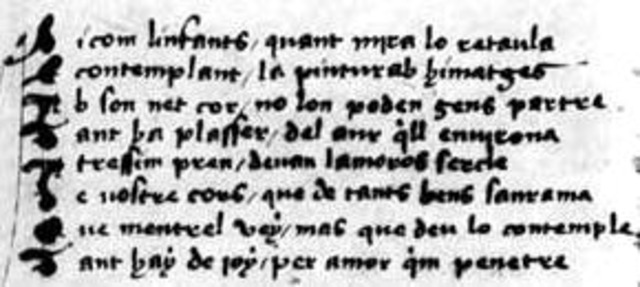 Sicom linfants, quant mira lo retaula
E contemplant, la pintura ab himatges
Ab son net cor, no lon poden gens partre
Tant ha plasser, del aur qll environa
Atressim pren, devan lamoros sercle
De vostre cors, que de tants bens sanrama
Que mentrel vey, mas que deu lo contemple
Tant hay de joy, per amor qim penetre